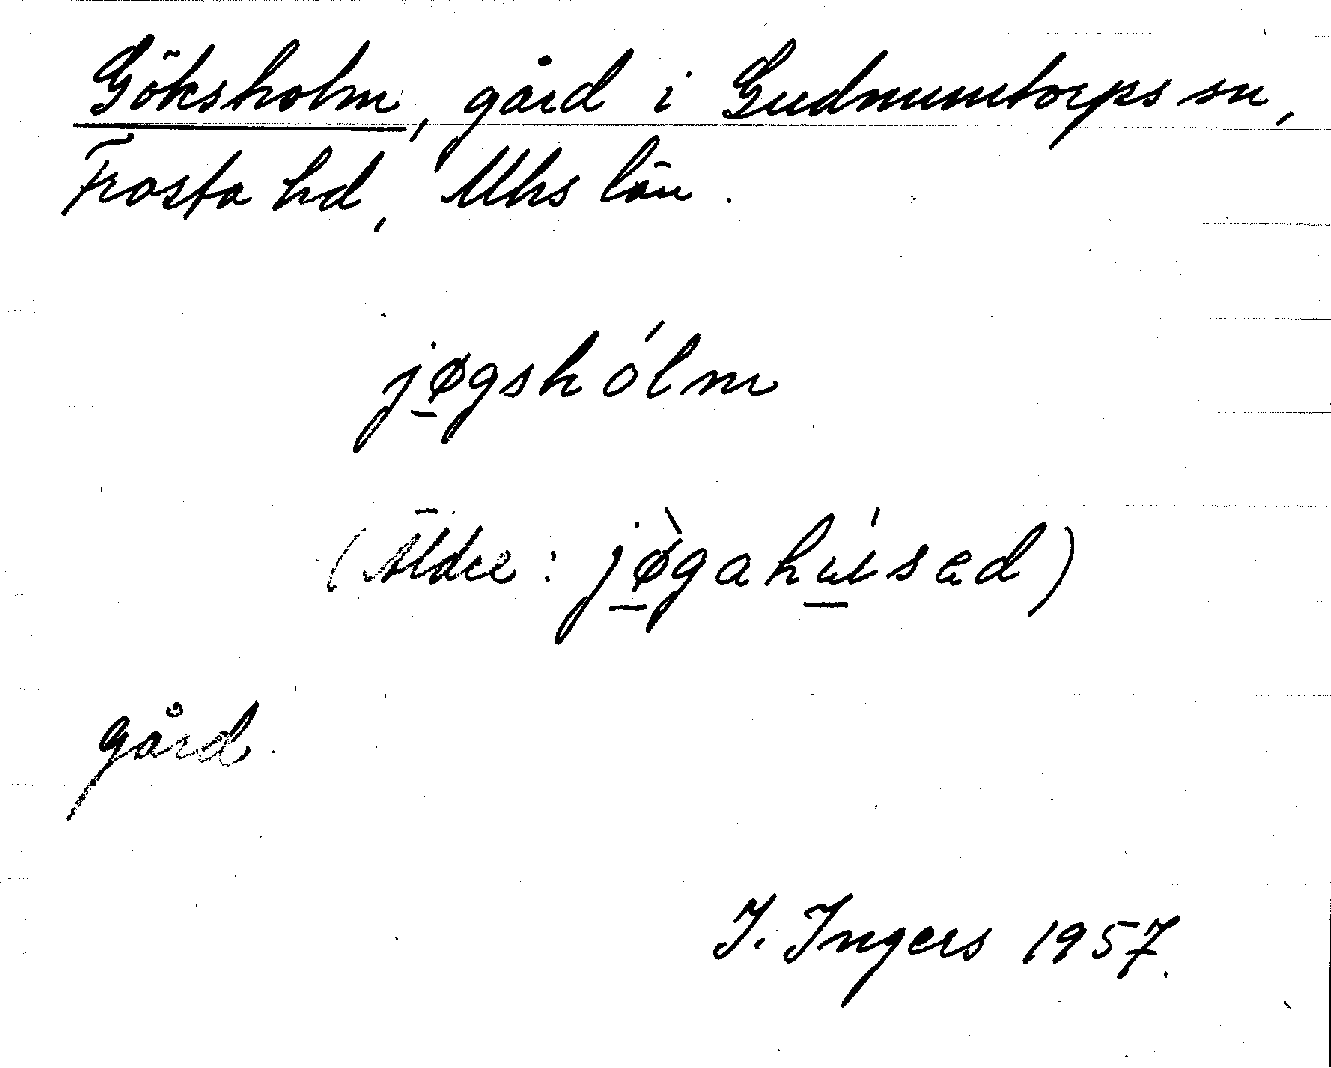 Göksholm, gård i Gudmuntorps sn,
Frosta hd, Mhs län.
jø̱gshólm
(Äldre: jø̱̀gahú̱sad)
gård.
I. Ingers 1957.